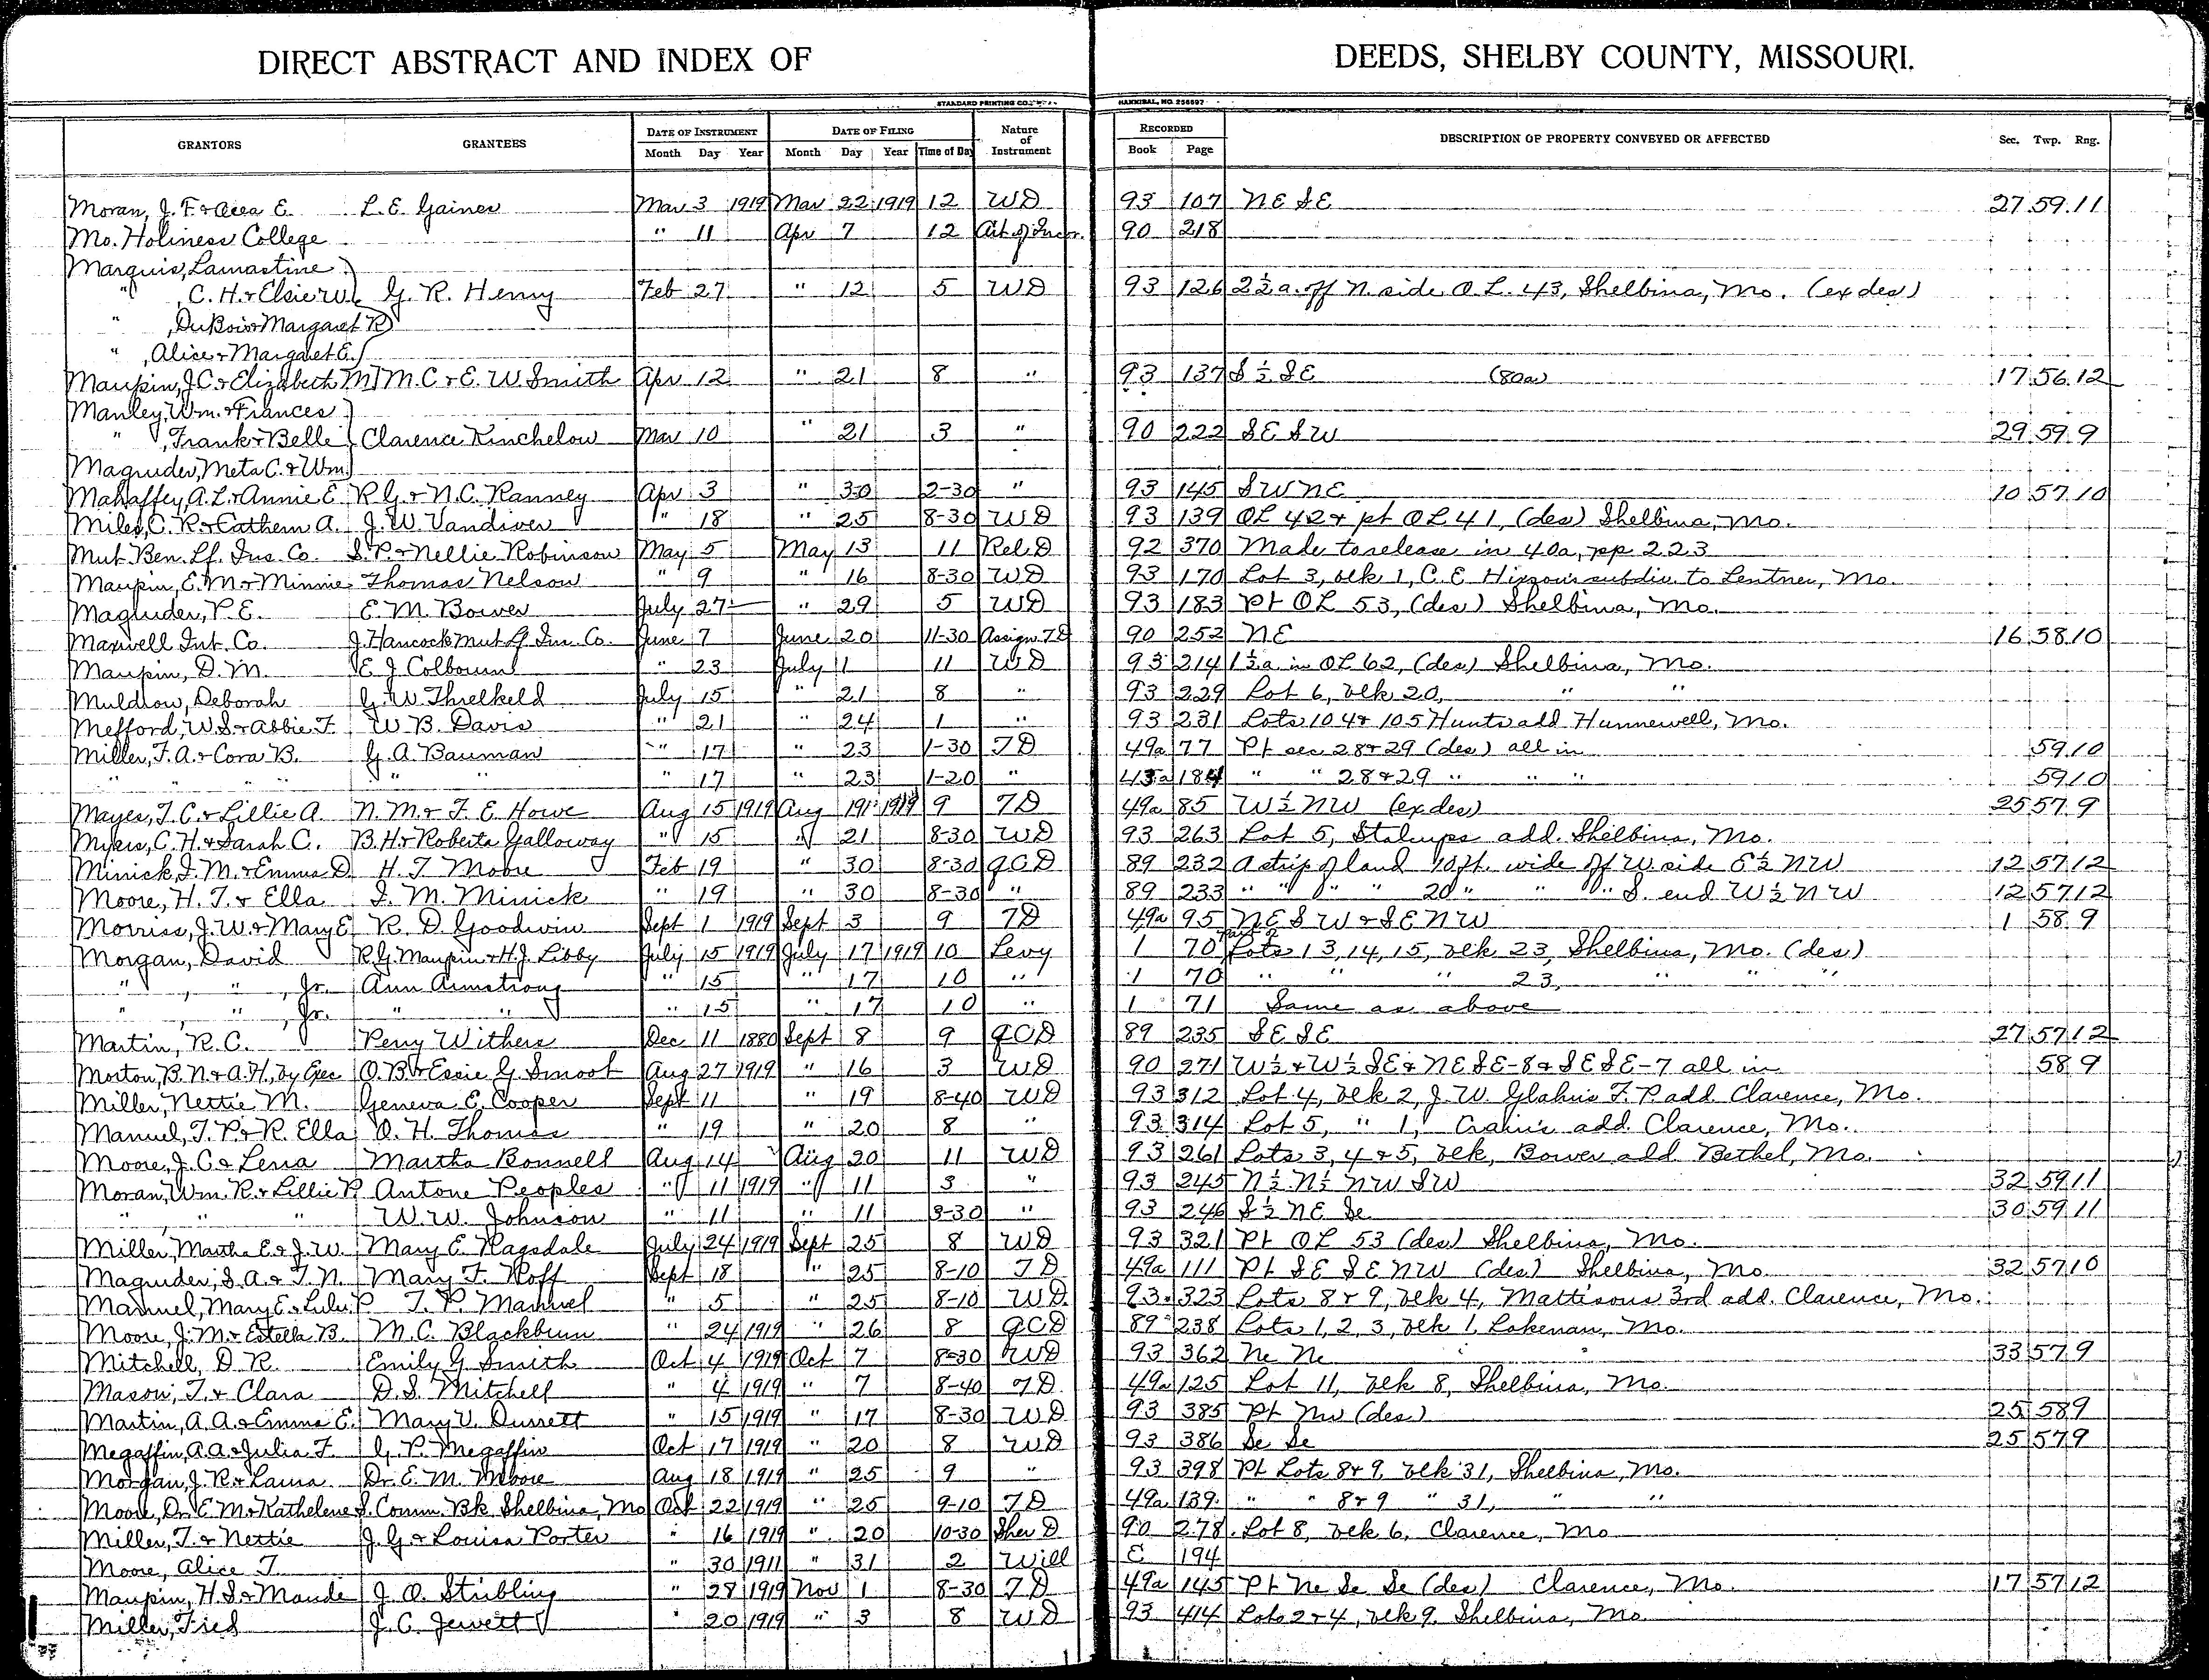 DIRECT ABSTRACT AND INDEX OF DEEDS, SHELBY COUNTY, MISSOURI.
STANDARD PRINTING CO. HANNIBAL, NO. 256697
GRANTORS GRANTEES DATE OF INSTRUMENT DATE OF FILING Nature of Instrument RECORDED DESCRIPTION OF PROPERTY CONVEYED OR AFFECTED Sec. Twp. Rng.
Month Day Year Month Day Year Time of Day Book Page
Moran, J. F. & E. L. E. Gaines Mar 3 1919 Mar 22 1919 12 WD 93 107 NE SE 27 59 11
Mo. Holiness College " 11 Apr 7 12 Art of Incor. 90 218
Marquis, Lamastine
" , C. H. & Elsie W. G. R. Henry Feb 27 " 12 5 WD 93 126 2½ a. off N. side O.L. 43, Shelbina, Mo. (ex des)
" , DuBois & Margaret R
" , Alice & Margaret E.
Maupin, J.C. & Elizabeth M M.C. & E. W. Smith Apr 12 " 21 8 " 93 137 S ½ SE (80a) 17 56 12
Manley, Wm. & Frances
" , Frank & Belle Clarence Kinchelow Mar 10 " 21 3 " 90 222 SE SW 29 59 9
Magruder, Meta C. & Wm.
Mahaffey, A.L. & Annie E R G. & N.C. Ranney Apr 3 " 30 2-30 " 93 145 SW NE 10 57 10
Miles, C. R. & Cathern A. J. W. Vandiver " 18 " 25 8-30 WD 93 139 OL 42 & pt OL 41, (des) Shelbina, Mo.
Mut Ben. Lf. Ins. Co. S. P. & Nellie Robinson May 5 May 13 11 Rel D 92 370 Made to release in 40a, pp 223
Maupin, E. M. & Minnie Thomas Nelson " 9 " 16 8-30 WD 93 170 Lot 3, blk 1, C. E. subdiv. to Lentner, Mo.
Magruder, P. E. E. M. Bower July 27 " 29 5 WD 93 183 Pt OL 53, (des) Shelbina, Mo.
Maxwell Int. Co. J. Hancock Mut Lf Ins. Co. June 7 June 20 11-30 Assign TD 90 252 NE 16 58 10
Maupin, D. M. E J Colbourn " 23 July 1 11 WD 93 214 1½a in OL 62, (des) Shelbina, Mo.
Muldrow, Deborah G. W. Threlkeld July 15 " 21 8 " 93 229 Lot 6, blk 20, " "
Mefford, W.S. & Abbie F. W. B. Davis " 21 " 24 1 " 93 231 Lots 104 & 105 Hunts add Hunnewell, Mo.
Miller, F. A. & Cora B. G. A. Bauman " 17 " 23 1-30 TD 49a 77 Pt sec 28 & 29 (des) all in 59 10
" " " " " " " 17 " 23 1-20 " 43a 184 " " 28 & 29 " " " 59 10
Mayes, T. C. & Lillie A. N. M. & F. E. Howe Aug 15 1919 Aug 19 1919 9 TD 49a 85 W ½ NW (ex des) 25 57 9
Myers, C. H. & Sarah C. B. H. & Roberta Galloway " 15 " 21 8-30 WD 93 263 Lot 5, Stalcups add. Shelbina, Mo.
Minick, I. M. & Emma D H. T Moore Feb 19 " 30 8-30 QCD 89 232 A strip of land 10 ft. wide off W side E ½ NW 12 57 12
Moore, H. T. & Ella I. M. Minick " 19 " 30 8-30 " 89 233 " " " " 20 " " " S. end W ½ NW 12 57 12
Morriss, J. W. & Mary E R. D. Goodwin Sept 1 1919 Sept 3 9 TD 49a 95 NE SW & SE NW 1 58 9
Morgan, David R.G. Maupin & H.J. Libby July 15 1919 July 17 1919 10 Levy 1 70 Part of Lots 13, 14, 15, blk 23, Shelbina, Mo. (des)
" , " , Jr. Ann Armstrong " 15 " 17 10 " 1 70 " " " 23, " " "
" , " , Jr. " " " 15 " 17 10 " 1 71 Same as above
Martin, R. C. Perry Withers Dec 11 1880 Sept 8 9 QCD 89 235 SE SE 27 57 12
Morton, B. N. & A. H, by Exec O. B. & Essie G Smoot Aug 27 1919 " 16 3 WD 90 271 W½ & W½ SE & NE SE-8 & SE SE-7 all in 58 9
Miller, Nettie M. Geneva E. Cooper Sept 11 " 19 8-40 WD 93 312 Lot 4, blk 2, J. W. Glahn's F. P. add. Clarence, Mo.
Manuel, T. P. & R. Ella O. H. Thomas " 19 " 20 8 " 93 314 Lot 5, " 1, Crain's add. Clarence, Mo.
Moore, J. C. & Lena Martha Bonnell Aug 14 Aug 20 11 WD 93 261 Lots 3, 4 & 5, blk, Bower add Bethel, Mo.
Moran, Wm. R. & Lillie P Antone Peoples " 11 1919 " 11 3 " 93 245 N ½ N ½ NW SW 32 59 11
" " " W. W. Johnson " 11 " 11 3-30 " 93 246 S ½ NE Se 30 59 11
Miller, Martha E. & J. W. Mary E. Ragsdale July 24 1919 Sept 25 8 WD 93 321 Pt OL 53 (des) Shelbina, Mo.
Magruder, S. A. & T. N. Mary F. Hoff Sept 18 " 25 8-10 TD 49a 111 Pt SE SE NW (des) Shelbina, Mo. 32 57 10
Manuel, Mary E. & Lulu P T. P. Manuel " 5 " 25 8-10 WD 93 323 Lots 8 & 9, blk 4, Mattisons 3rd add. Clarence, Mo.
Moore, J. M. & Estella B. M. C. Blackburn " 24 1919 " 26 8 QCD 89 238 Lots 1, 2, 3, blk 1, Lakenan, Mo.
Mitchell, D. R. Emily G Smith Oct 4 1919 Oct 7 8-30 WD 93 362 Ne Ne 33 57 9
Mason, T. & Clara D. S. Mitchell " 4 1919 " 7 8-40 TD 49a 125 Lot 11, blk 8, Shelbina, Mo.
Martin, A. A. & Emma E. Mary V. Durrett " 15 1919 " 17 8-30 WD 93 385 Pt Nw (des) 25 58 9
Megaffin, A.A. & Julia F. G. P. Megaffin Oct 17 1919 " 20 8 WD 93 386 Se Se 25 57 9
Morgan, J. R. & Laura Dr. E. M. Moore Aug 18 1919 " 25 9 " 93 398 Pt Lots 8 & 9, blk 31, Shelbina, Mo.
Moore, Dr. E. M. & Kathelene S. Comm. Bk Shelbina, Mo Oct 22 1919 " 25 9-10 TD 49a 139 " " 8 & 9 " 31, " "
Miller, T. & Nettie J. G. & Louisa Porter " 16 1919 " 20 10-30 Sher D 90 278 Lot 8, blk 6, Clarence, Mo
Moore, Alice T. " 30 1911 " 31 2 Will E 194
Maupin, H. S. & Maude J. O. Stribling " 28 1919 Nov 1 8-30 TD 49a 145 Pt Ne Se Se (des) Clarence, Mo. 17 57 12
Miller, Fred J. C. Jewett " 20 1919 " 3 8 WD 93 414 Lots 2 & 4, blk 9, Shelbina, Mo.